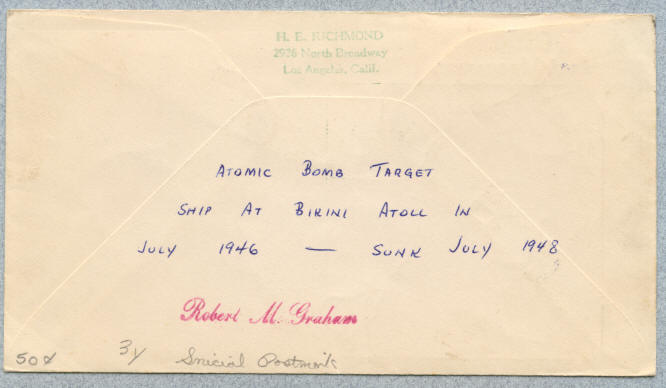 H. E. RICHMOND
2926 North Broadway
Los Angeles, Calif.
ATOMIC BOMB TARGET
SHIP AT BIKINI ATOLL IN
JULY 1946 — SUNK JULY 1948
Robert M. Graham
50¢ 3y Postmark